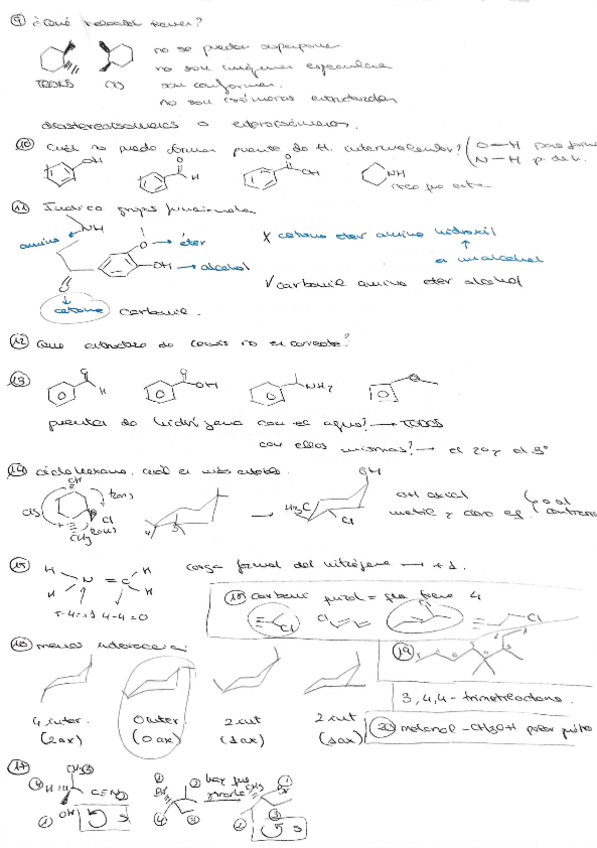 9 ¿Qué relación tienen?
TRANS CIS
no se pueden superponer
no son imágenes especulares
son conformer.
no son isómeros estructurales
diastereoisómeros o estereoisómeros.
10 Cuál no puede formar puente de H intermolecular? O-H para formar
N-H p. de h.
OH O H O OH NH
11 Indica grupos funcionales
amino NH
O → éter
OH → alcohol
O
cetona carbonil.
X cetona eter amino hidroxil
es un alcohol
✓ carbonil amino eter alcohol
12 Que estructura de Lewis no es correcta?
13 O H O OH NH2 O
puentes de hidrógeno con el agua? → TODOS
con ellos mismos? → el 2º y el 3º
14 ciclohexano. cuál es más estable.
OH trans
cis Cl
CH3 trans
OH
H3C Cl
OH axial
metil y cloro eq.
15 H H
N = C
H H
5-4=+1 4-4=0
carga formal del nitrógeno → +1.
18 carbono quiral = que tiene 4
Cl Cl Cl
16 menos interacción
4 inter. 0 inter 2 int 2 int
(2ax) (0ax) (1ax) (1ax)
19
3,4,4-trimetiloctano.
20 metanol - CH3OH polar prótico
17 CH3 3
4 H C≡N 2
1 OH S
1 Br 2 4 3
hay que girarla
CH3 1 Br 2 3
S